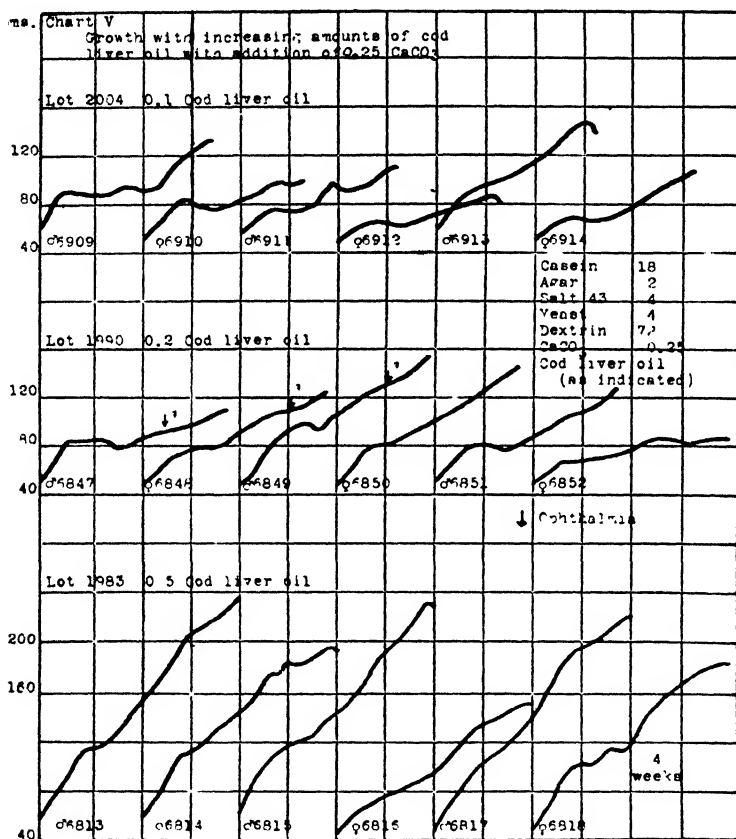 ms. Chart V
Growth with increasing amounts of cod
liver oil with addition of 0.25 CaCO3
Lot 2004 0.1 Cod liver oil
120
80
40
♂6909 ♀6910 ♂6911 ♀6912 ♂6913 ♀6914
Casein 18
Agar 2
Salt 43 4
Yeast 4
Dextrin 72
CaCO3 0.25
Cod liver oil
(as indicated)
Lot 1990 0.2 Cod liver oil
120
80
40
? ? ?
♂6847 ♀6848 ♂6849 ♀6850 ♂6851 ♀6852
↓ Ophthalmia
Lot 1983 0.5 Cod liver oil
200
160
40
♂6813 ♂6814 ♂6815 ♀6816 ♂6817 ♀6818
4
weeks